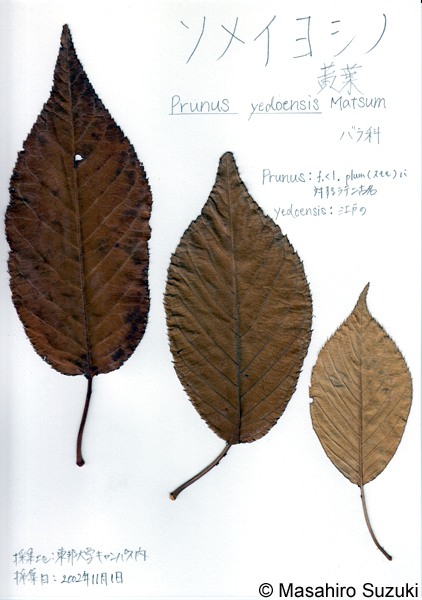 ソメイヨシノ
黄葉
Prunus yedoensis Matsum
バラ科
Prunus: f.<l. plum(スモモ)に
対するラテン古名
yedoensis: 江戸の
採集地:東邦大学キャンパス内
採集日:2002年11月1日
© Masahiro Suzuki